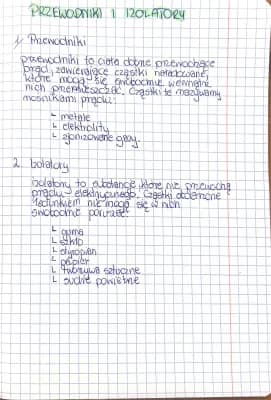 PRZEWODNIKI I IZOLATORY
1. Przewodniki
przewodniki to ciała dobrze przewodzące
prąd, zawierające cząstki naładowane,
które mogą się swobodnie wewnątrz
nich przemieszczać. Cząstki te nazywamy
nośnikami prądu:
└ metale
└ elektrolity
└ zjonizowane gazy.
2. Izolatory
Izolatory to substancje, które nie przewodzą
prądu elektrycznego. Cząstki obdarzone
ładunkiem nie mogą się w nich
swobodnie poruszać
└ guma
└ szkło
└ styropian
└ papier
└ tworzywa sztuczne
└ suche powietrze